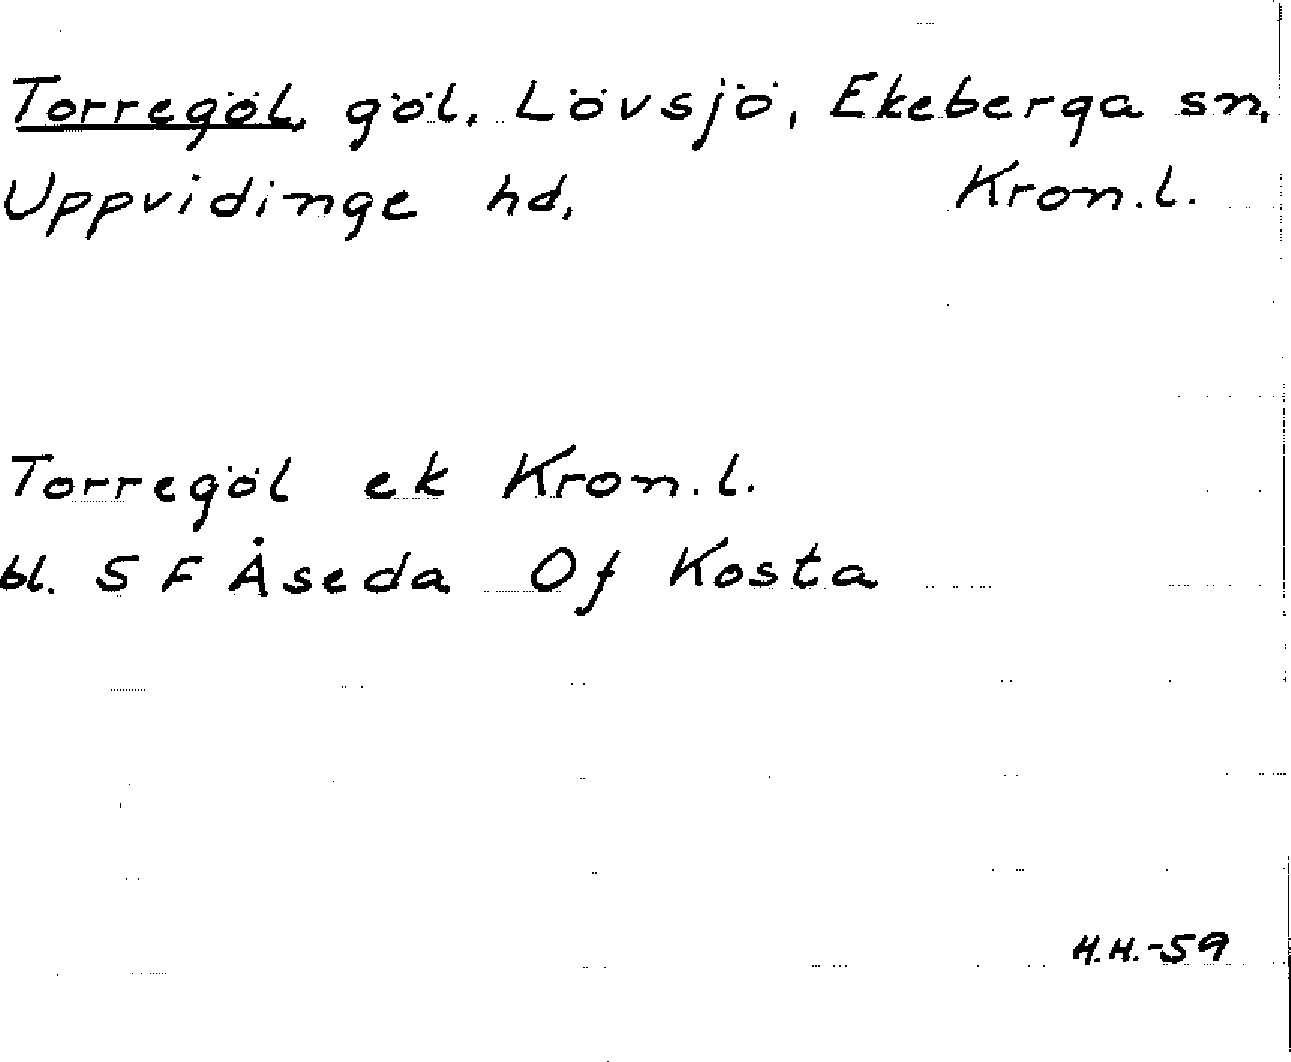 Torregöl, göl, Lövsjö, Ekeberga sn,
Uppvidinge hd, Kron.l.
Torregöl ek Kron.l.
bl. 5 F Åseda Of Kosta
H.H.-59